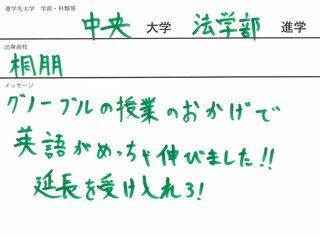 進学先大学 学部・科類等
中央 大学 法学部 進学
出身高校
桐朋
メッセージ
グノーブルの授業のおかげで
英語がめっちゃ伸びました!!
延長を受け入れろ!